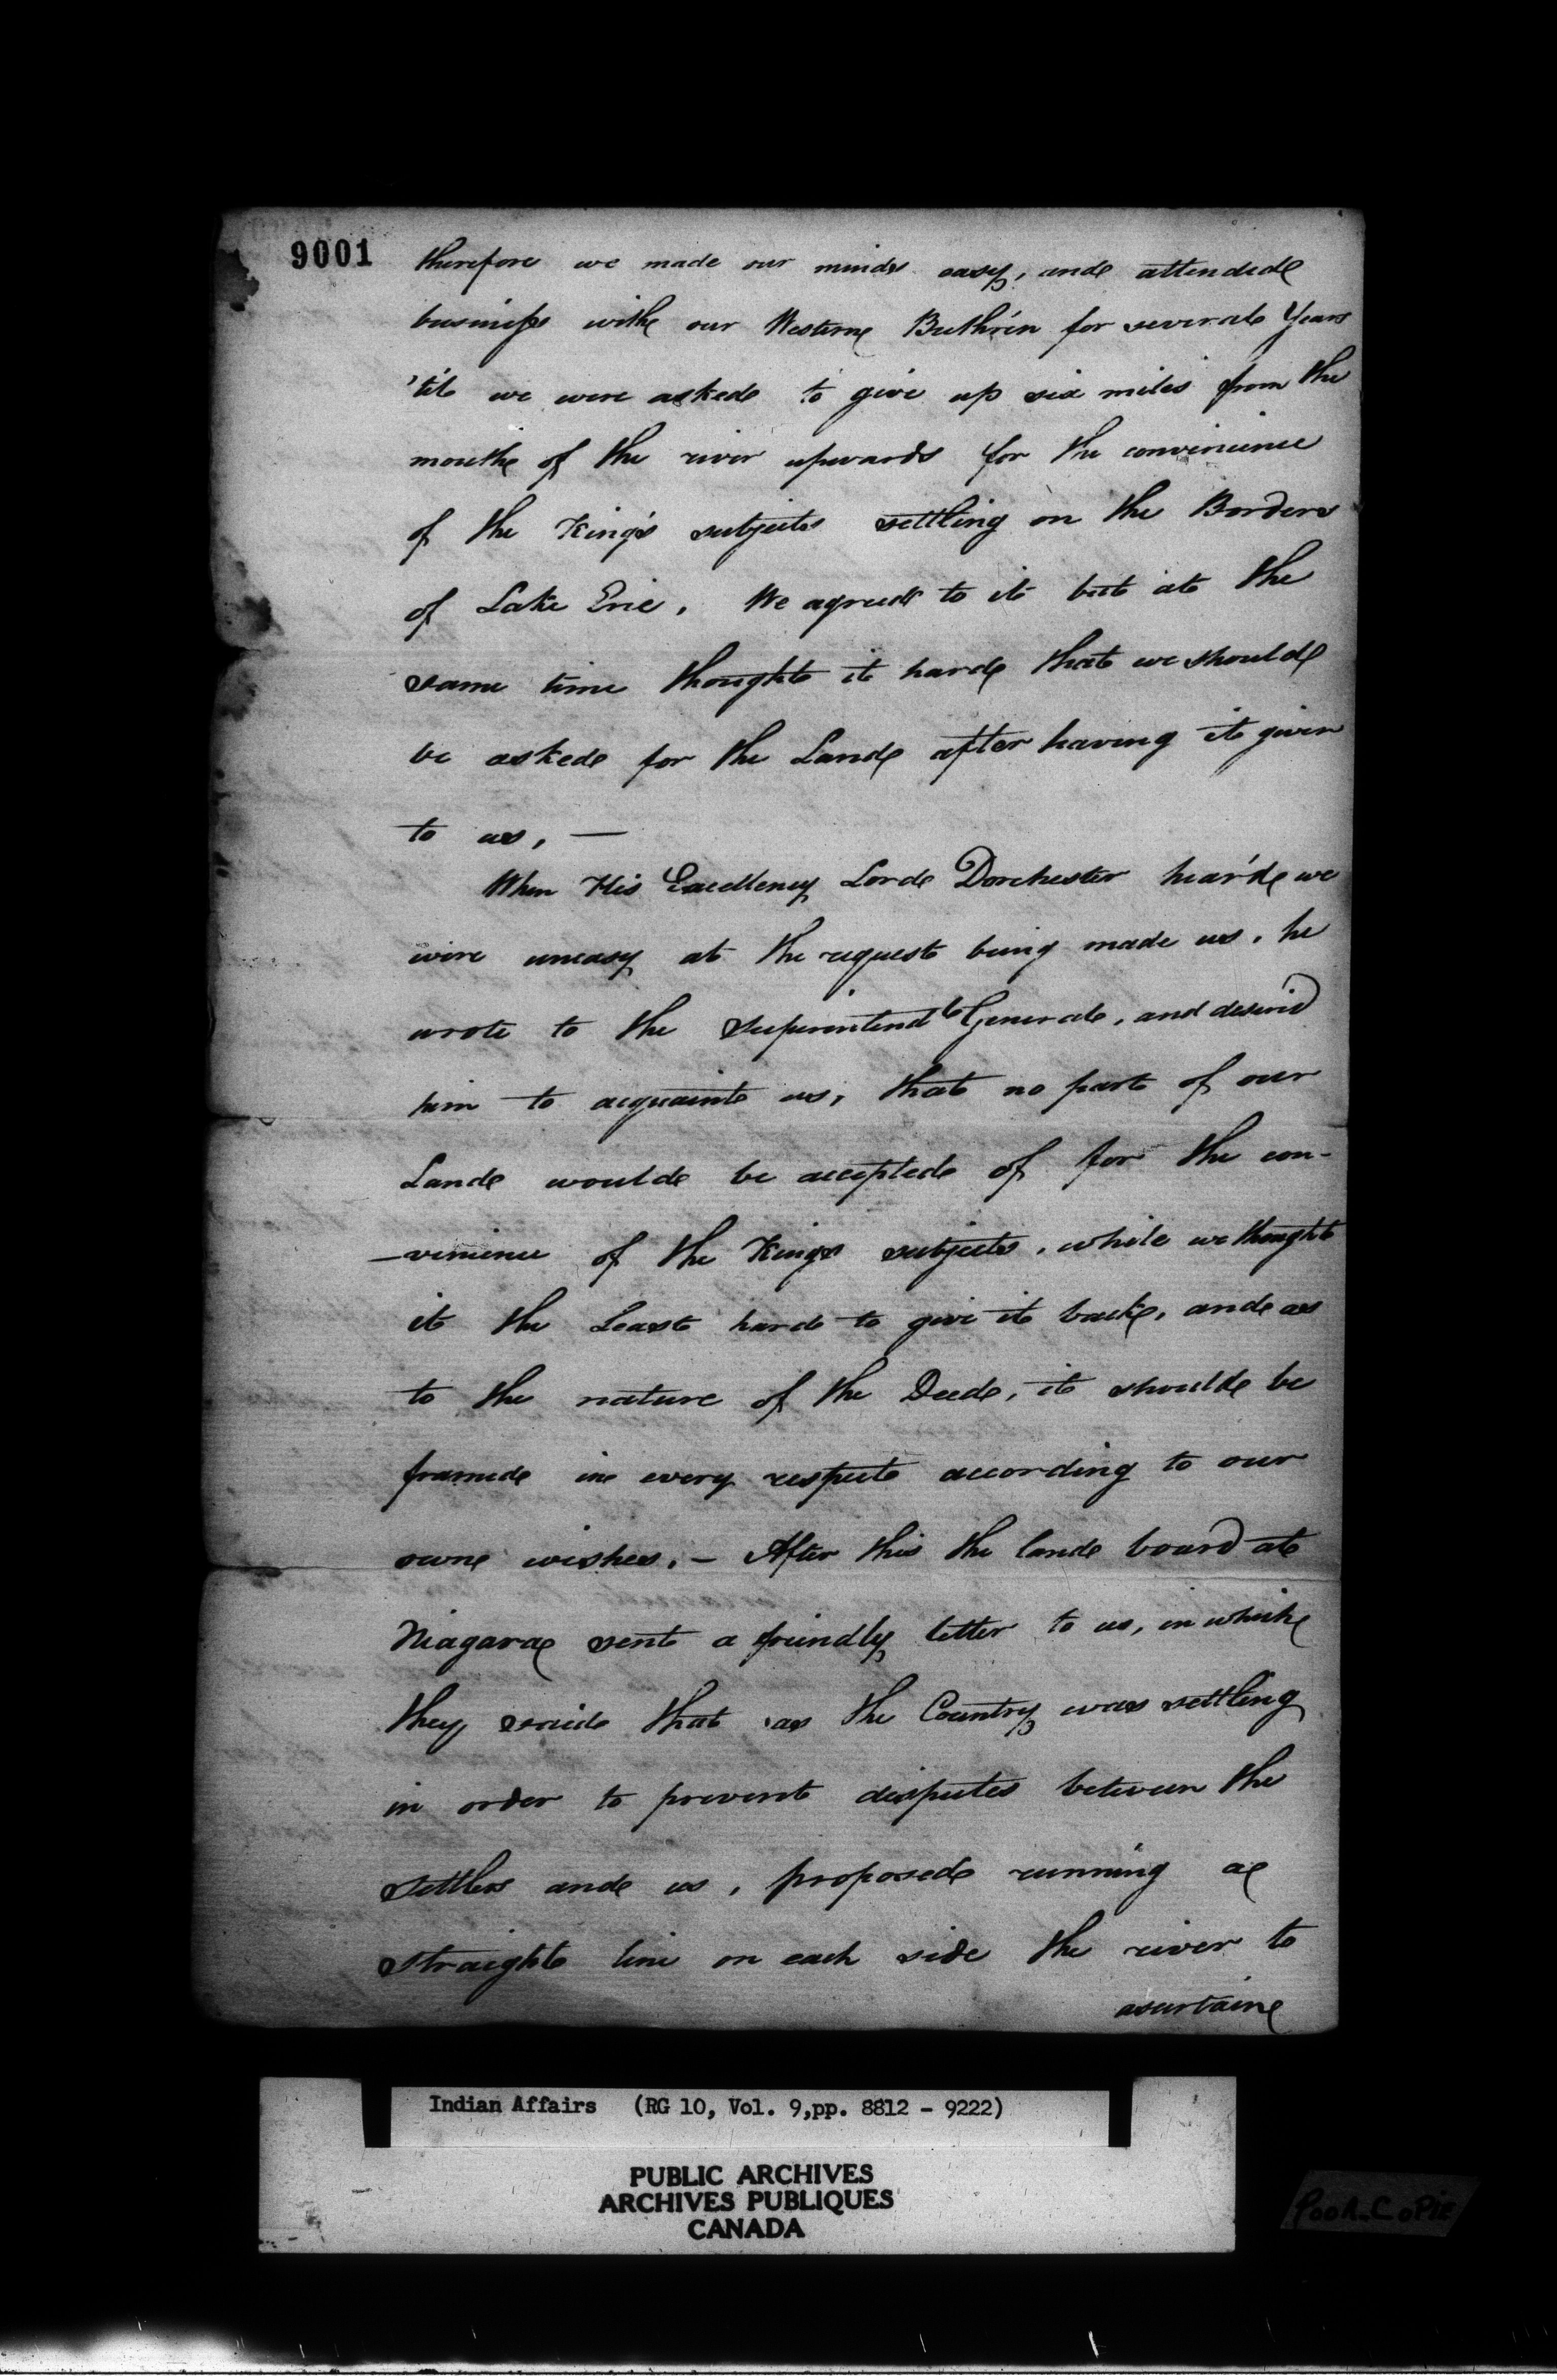 9001
therefore we made our minds easy, and attended
business with our Western Brethren for several Years
'til we were asked to give up six miles from the
mouth of the river upwards for the convenience
of the King's subjects settling on the Borders
of Lake Erie, We agreed to it but at the
same time thought it hard that we should
be asked for the Land after having it given
to us, —
When His Excellency Lord Dorchester hear'd we
were uneasy at the request being made us, he
wrote to the Superintendt General, and desired
him to acquaint us, that no part of our
Land would be accepted of for the con-
-venience of the Kings subjects, while we thought
it the Least hard to give it back, and as
to the nature of the Deed, it should be
framed in every respect according to our
own wishes, - After this the land board at
Niagara sent a friendly letter to us, in which
they said that as the Country was settling
in order to prevent disputes between the
settlers and us, proposed running a
straight line on each side the river to
ascertain
Indian Affairs (RG 10, Vol. 9,pp. 8812 - 9222)
PUBLIC ARCHIVES
ARCHIVES PUBLIQUES
CANADA
Poor_Copie